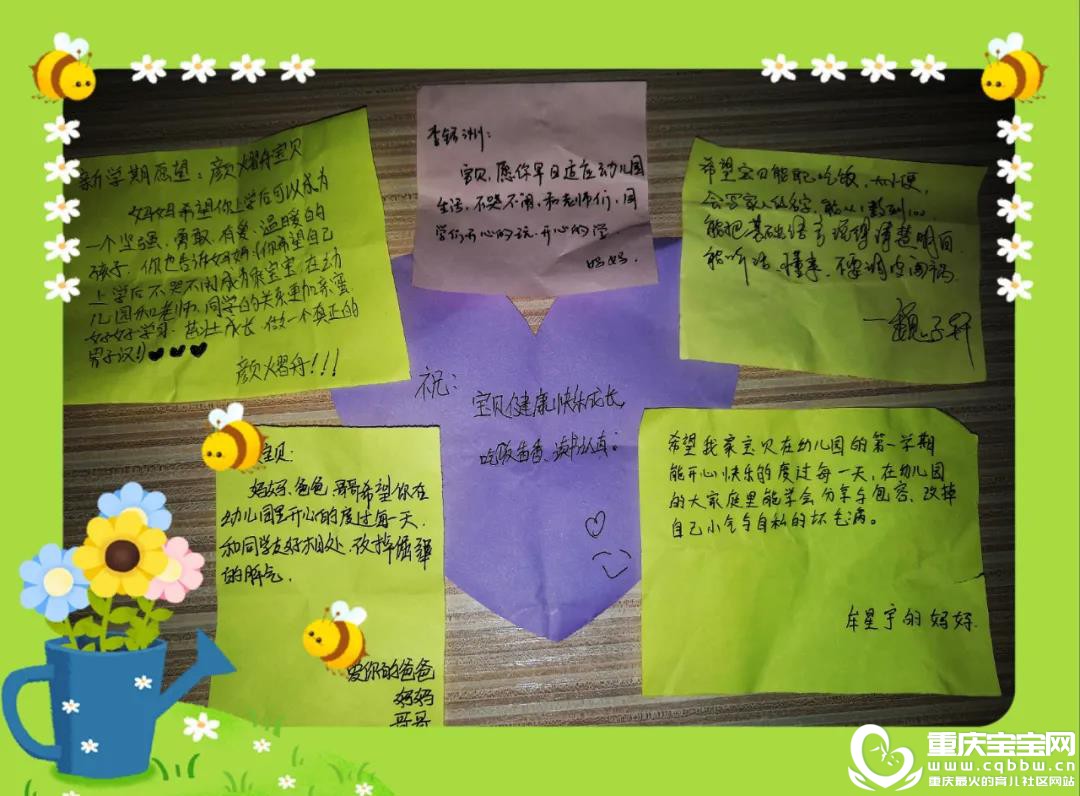 新学期愿望：颜熠舟宝贝
妈妈希望你上学后可以成为
一个坚强、勇敢、有爱、温暖的
孩子。你也告诉妈妈：你希望自己
上学后不哭不闹成为乖宝宝，在幼
儿园和老师、同学的关系更加亲密
好好学习、茁壮成长、做一个真正的
男子汉!)
颜熠舟!!!
李铭洲：
宝贝，愿你早日适应幼儿园
生活，不哭不闹，和老师们，同
学们开心的玩，开心的学
妈妈.
希望宝贝能自己吃饭，大小便，
会写家人的名字，能从1数到100
能把基础语言说得清楚明白
能听话、懂事、不要调皮闹祸
—魏子轩
祝：
宝贝健康快乐成长，
吃饭香香，读书认真；
宝贝：
妈妈、爸爸、哥哥希望你在
幼儿园里开心的度过每一天.
和同学友好相处，改掉倔犟
的脾气.
爱你的爸爸
妈妈
哥哥
希望我家宝贝在幼儿园的第一学期
能开心快乐的度过每一天，在幼儿园
的大家庭里能学会分享与包容、改掉
自己小气与自私的坏毛病。
牟星宇的妈妈.
重庆宝宝网
www.cqbbw.cn
重庆最火的育儿社区网站